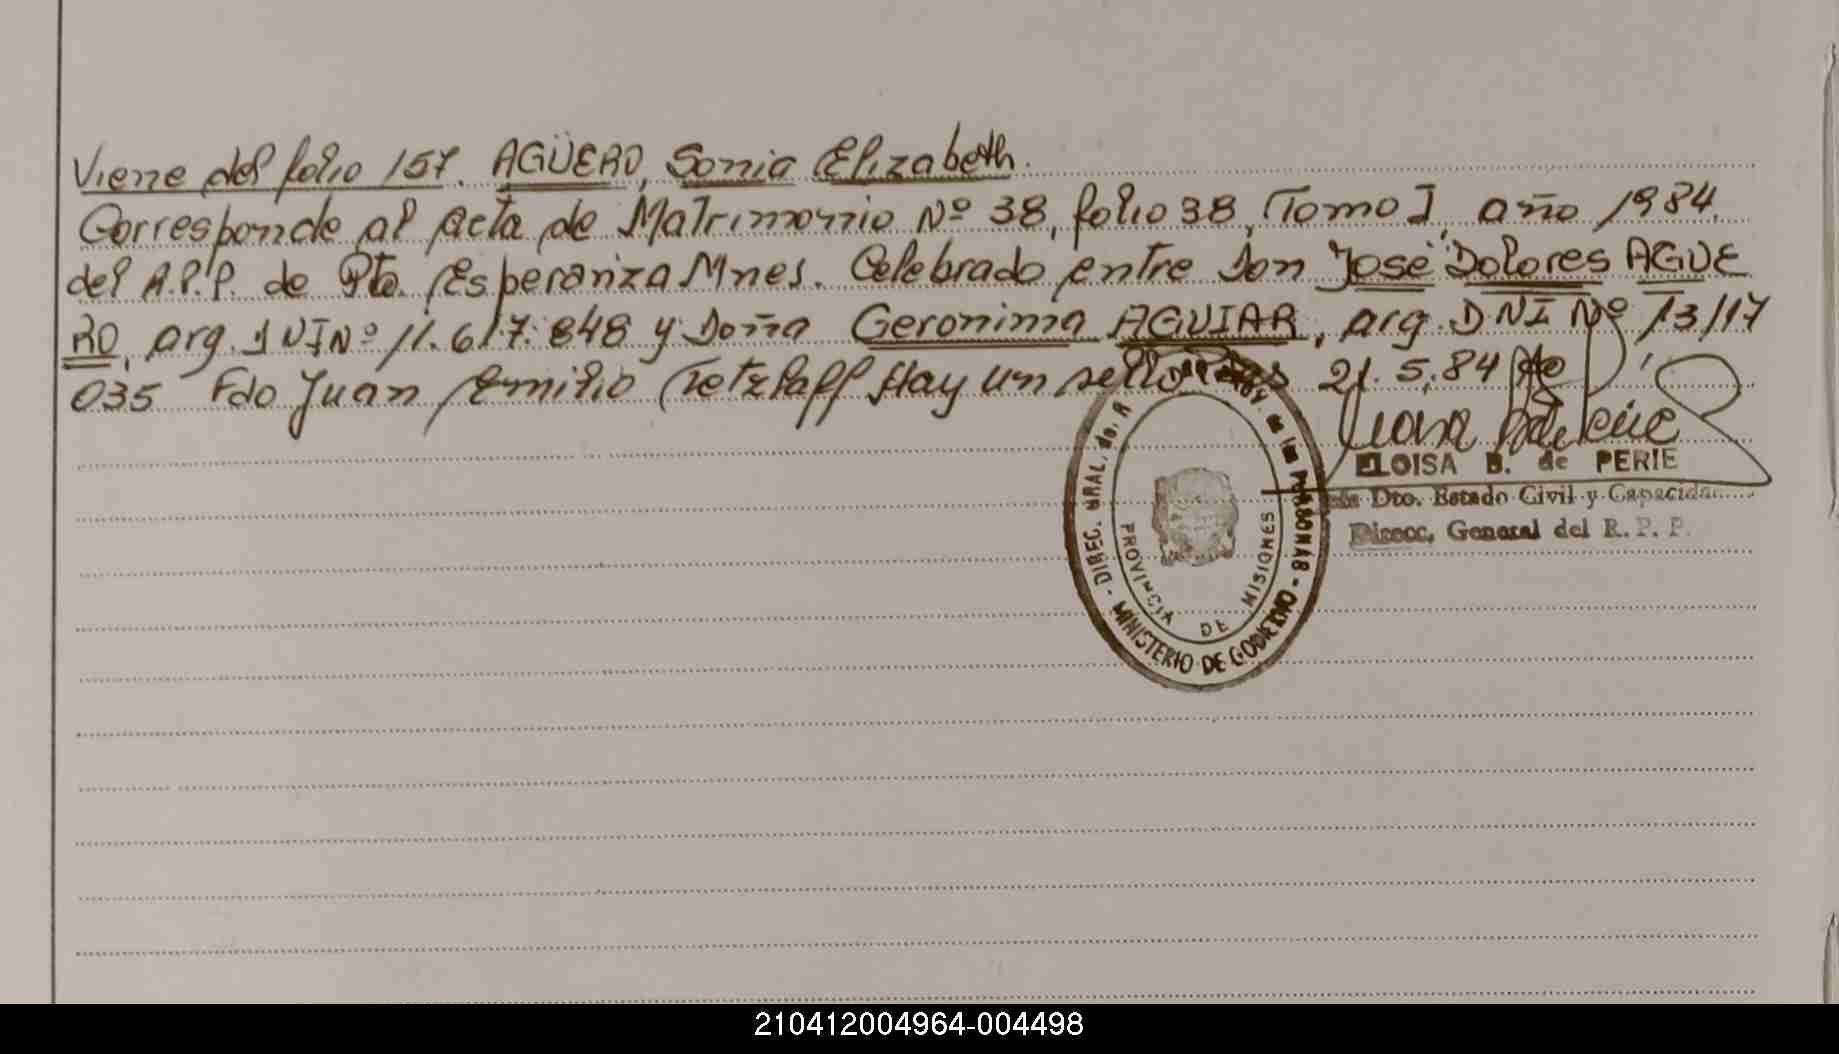 Viene del folio 157. AGÜERO, Sonia Elizabeth.
Corresponde al acta de Matrimonio Nº 38, folio 38, Tomo I, año 1984.
del A.P.P. de Pto. Esperanza Mnes. Celebrado entre Don José Dolores AGUE
RO, arg. DNI Nº 11.617.848 y Doña Geronima AGUIAR, arg. DNI Nº 13/117
035 Fdo Juan Emilio Tetzlaff Hay un sello 21.5.84
ELOISA B. de PERIE
Dto. Estado Civil y Capacida
Direcc. General del R. P. P.
DIREC. GRAL. de. de las PERSONAS - MINISTERIO DE GOBIERNO -
PROVINCIA DE MISIONES
210412004964-004498